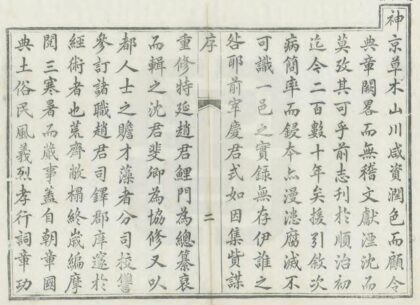 神京草木山川咸資潤色而顧令
典章闕畧而無稽文獻湮沈而
莫攷其可乎前志刊於順治初
迄今二百數十年矣援引敘次
病簡率而鋟本亦漫漶腐滅不
可識一邑之實録無存伊誰之
咎耶前宰慶君式如因集貲謀
序
二
重修特延趙君鯉門為總纂裒
而輯之沈君斐卿為協修又以
都人士之贍才藻者分司校讐
參訂諸職趙君司鐸郡庠邃於
經術者也荒齋敝榻終歲編摩
閱三寒暑而歲事蓋自朝章國
典土俗民風義烈孝行詞章功